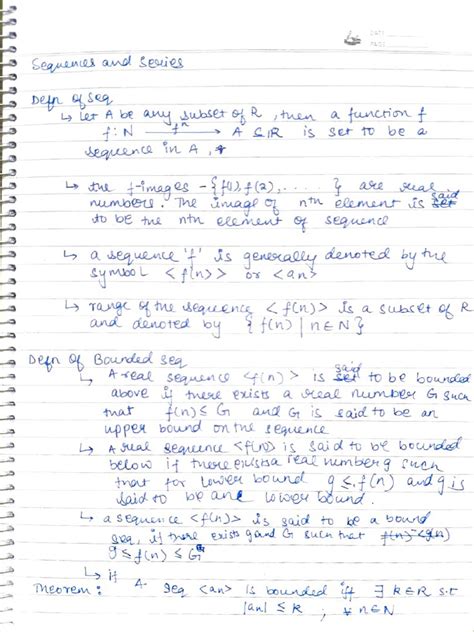 DATE
PAGE
Sequences and Series
Defn Of Seq
↳ Let A be any subset of R, then a function f
f: N —fⁿ→ A ⊆ IR is set to be a
sequence in A,
↳ the f-images - {f(1), f(2), ..... } are real
numbers. The image of nth element is said
to be the nth element of sequence
↳ a sequence 'f' is generally denoted by the
symbol <f(n)> or <an>
↳ range of the sequence <f(n)> is a subset of R
and denoted by {f(n) | n∈N}
Defn Of Bounded Seq
↳ A real sequence <f(n)> is said to be bounded
above if there exists a real number G such
that f(n) ≤ G and G is said to be an
upper bound on the sequence
↳ A real sequence <f(n)> is said to be bounded
below if there exists a real number g such
that for lower bound g ≤ f(n) and g is
said to be an lower bound.
↳ a sequence <f(n)> is said to be a bound
seq, if there exists g and G such that f(n) ≤ g(n)
g ≤ f(n) ≤ G
↳ if
Theorem: A seq <an> is bounded iff ∃ k∈R s.t
|an| ≤ k ; ∀ n∈N